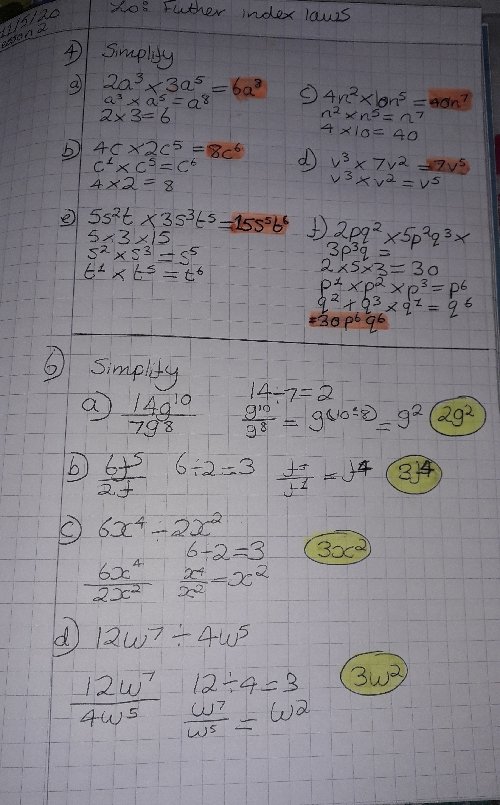 11/5/20
Lesson 2
Lo: Futher index laws
4) Simplify
a) 2a³ × 3a⁵ = 6a⁸
a³ × a⁵ = a⁸
2 × 3 = 6
b) 4c × 2c⁵ = 8c⁶
c¹ × c⁵ = c⁶
4 × 2 = 8
c) 4n² × 10n⁵ = 40n⁷
n² × n⁵ = n⁷
4 × 10 = 40
d) v³ × 7v² = 7v⁵
v³ × v² = v⁵
e) 5s²t × 3s³t⁵ = 15s⁵t⁶
5 × 3 × 15
s² × s³ = s⁵
t¹ × t⁵ = t⁶
f) 2pq² × 5p²q³ ×
3p³q =
2 × 5 × 3 = 30
p¹ × p² × p³ = p⁶
q² × q³ × q¹ = q⁶
= 30p⁶q⁶
6) Simplify
a) 14g¹⁰/7g⁸ 14 ÷ 7 = 2
g¹⁰/g⁸ = g⁽¹⁰⁻⁸⁾ = g² 2g²
b) 6f⁵/2f 6 ÷ 2 = 3 f⁵/f¹ = f⁴ 3f⁴
c) 6x⁴ ÷ 2x²
6 ÷ 2 = 3 3x²
6x⁴/2x² x⁴/x² = x²
d) 12w⁷ ÷ 4w⁵
12w⁷/4w⁵ 12 ÷ 4 = 3 3w²
w⁷/w⁵ = w²